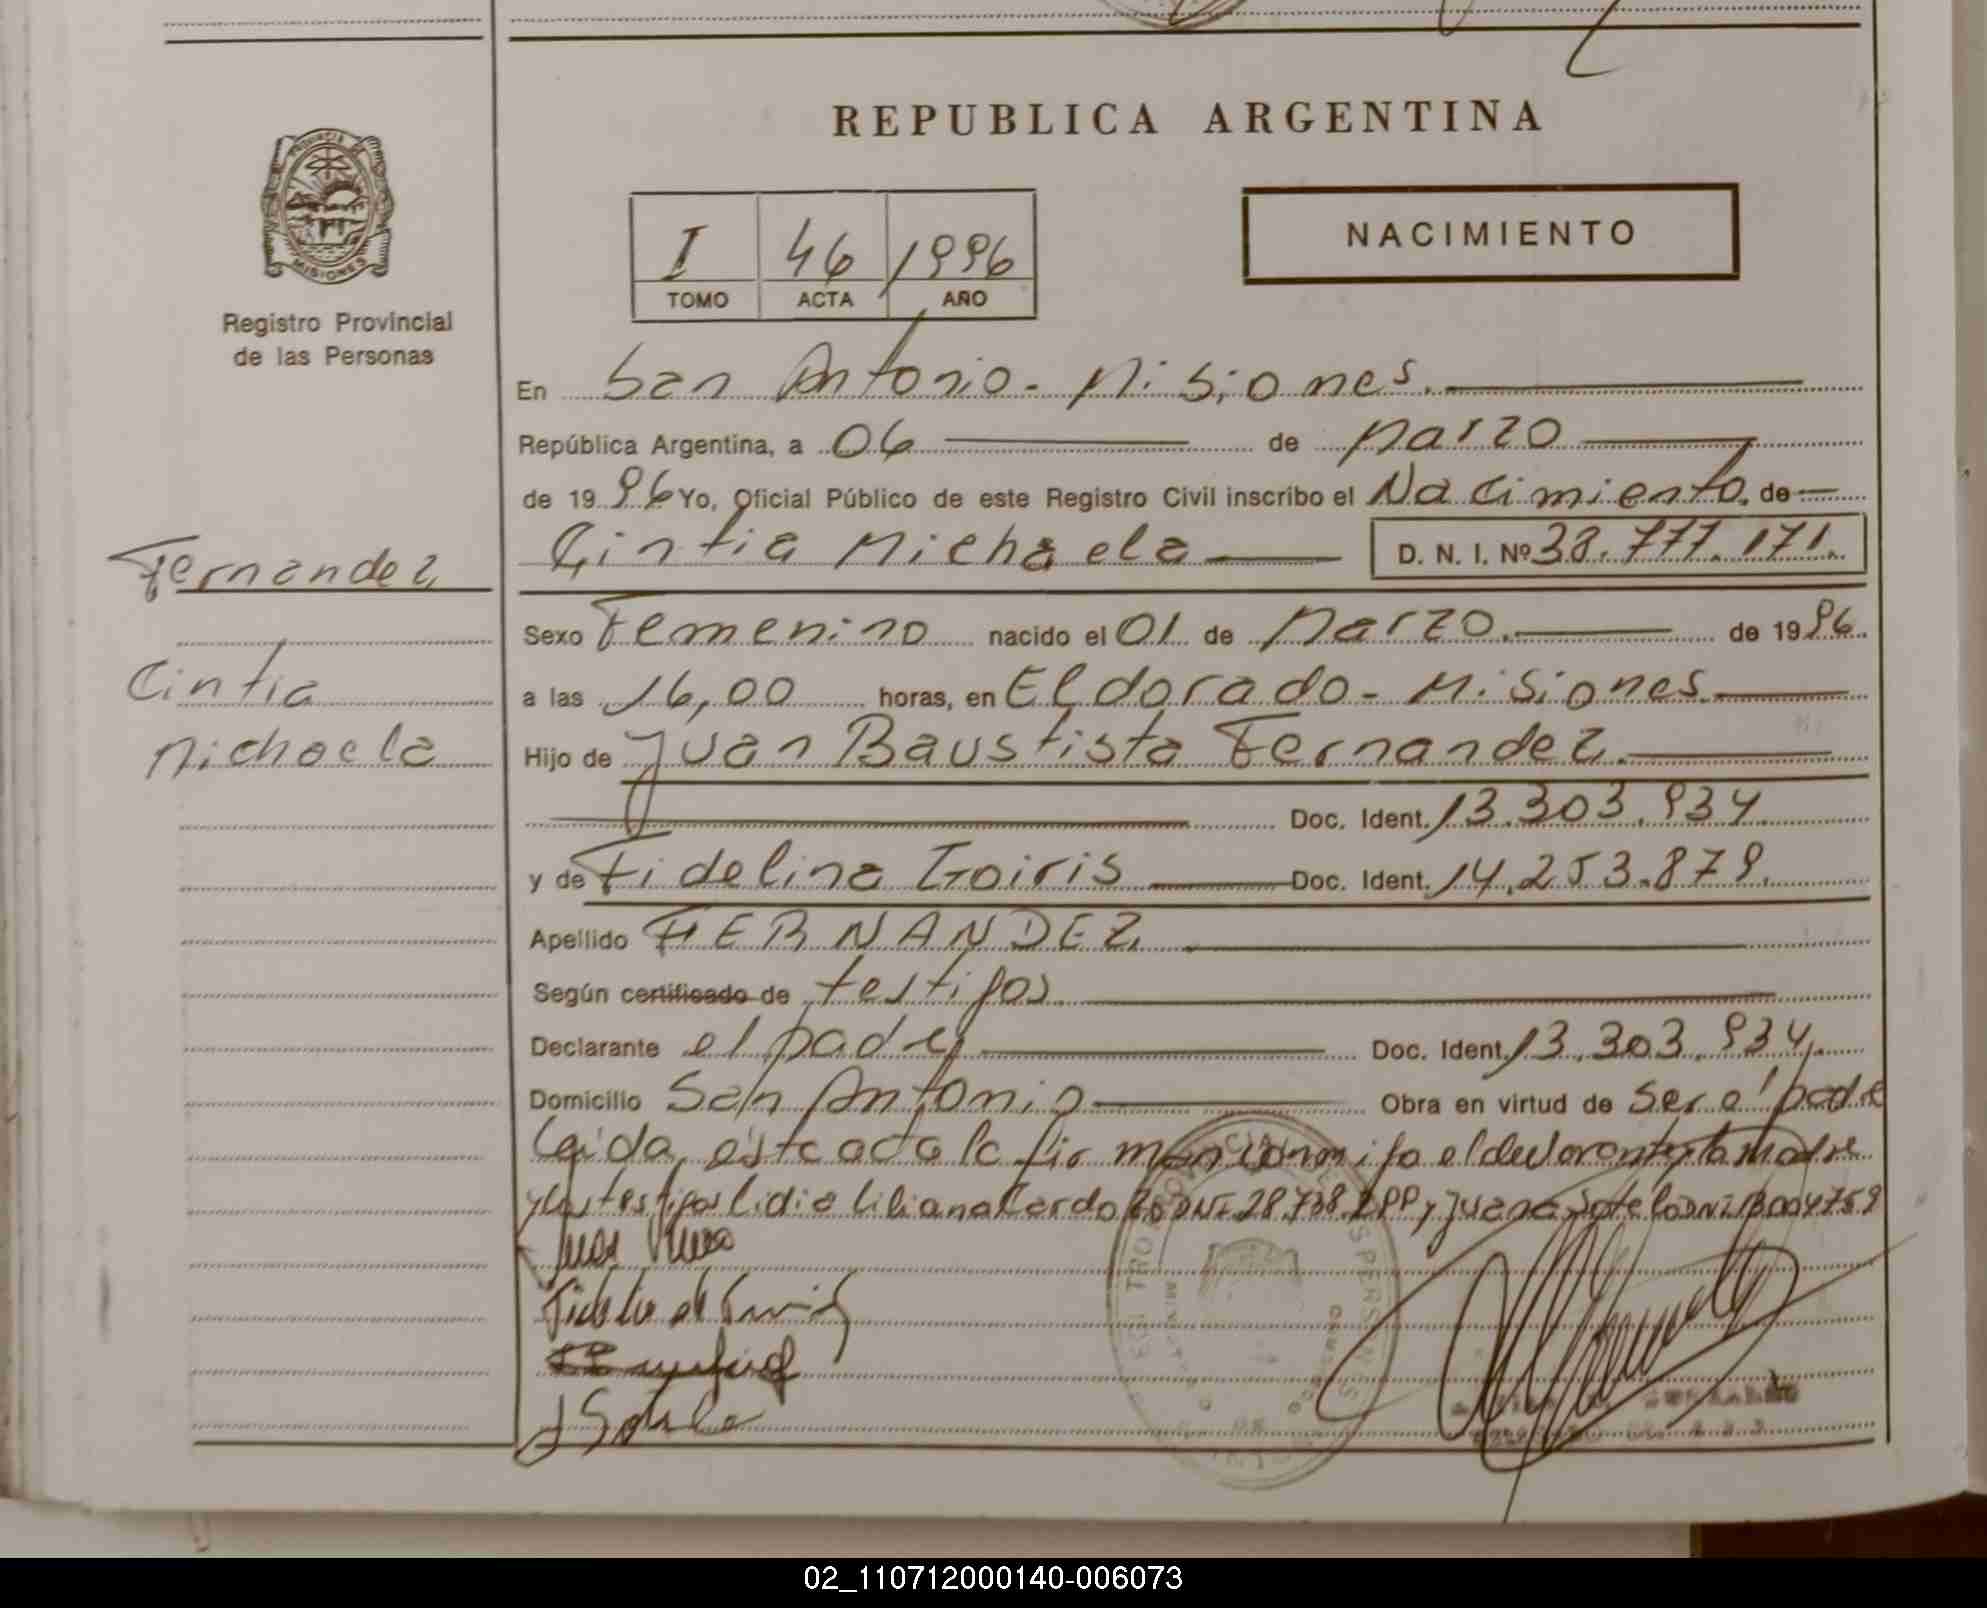 REPUBLICA ARGENTINA
PROVINCIA DE
MISIONES
Registro Provincial
de las Personas
I 46 1996
TOMO ACTA AÑO
NACIMIENTO
En San Antonio - Misiones.
República Argentina, a 06 de Marzo
de 1996 Yo, Oficial Público de este Registro Civil inscribo el Nacimiento. de
Cintia Michaela D. N. I. Nº 38.777.171.
Fernandez
Cintia
Michaela
Sexo Femenino nacido el 01 de Marzo. de 1996.
a las 16,00 horas, en Eldorado - Misiones.
Hijo de Juan Baustista Fernandez.
Doc. Ident. 13.303.934.
y de Fidelina Goiris Doc. Ident. 14.253.879.
Apellido FERNANDEZ.
Según certificado de testigos.
Declarante el padre Doc. Ident. 13.303.934.
Domicilio San Antonio Obra en virtud de ser el padre
Leida este acta la firman conmigo el declarante y la madre
y los testigos Lidia Liliana Cardozo DNI 28.738.299 y Juana Sotelo DNI
J Sotelo
02_110712000140-006073